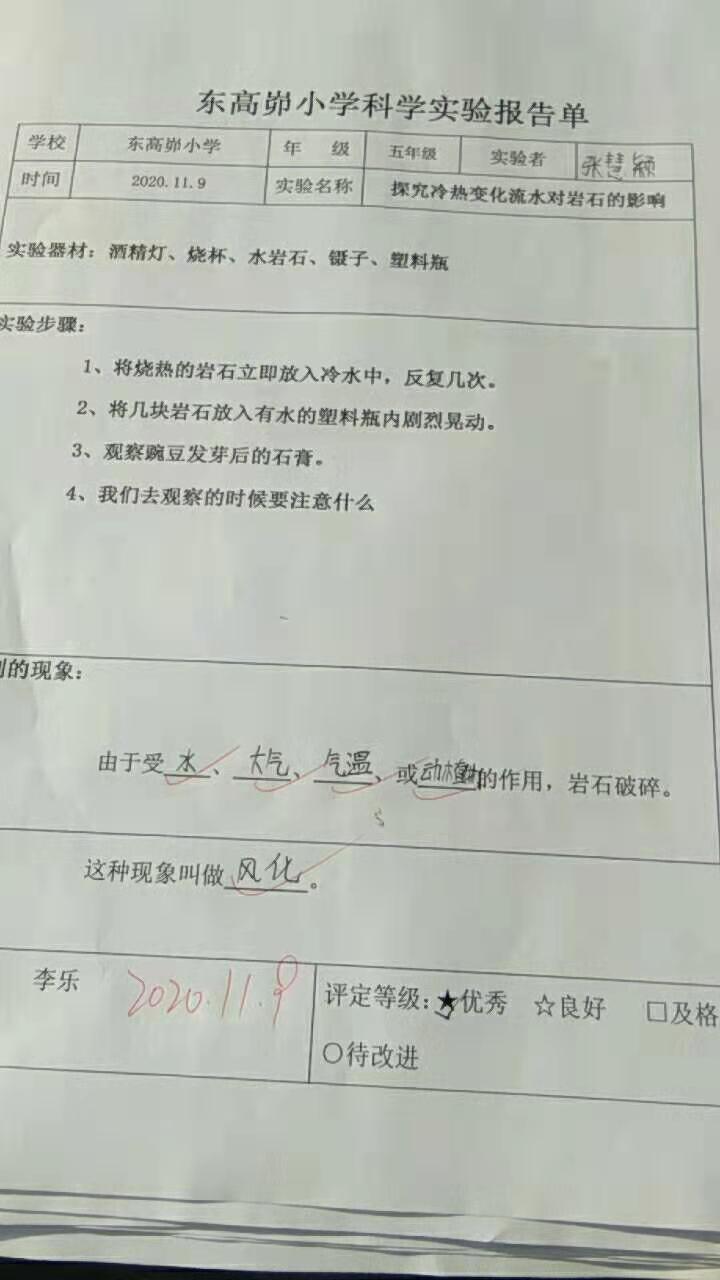 东高峁小学科学实验报告单
学校 东高峁小学 年 级 五年级 实验者 张慧颖
时间 2020.11.9 实验名称 探究冷热变化流水对岩石的影响
实验器材：酒精灯、烧杯、水岩石、镊子、塑料瓶
实验步骤：
1、将烧热的岩石立即放入冷水中，反复几次。
2、将几块岩石放入有水的塑料瓶内剧烈晃动。
3、观察豌豆发芽后的石膏。
4、我们去观察的时候要注意什么
到的现象：
由于受水、大气、气温、或动植物的作用，岩石破碎。
这种现象叫做风化。
李乐 2020.11.9 评定等级：★优秀 ☆良好 □及格
○待改进